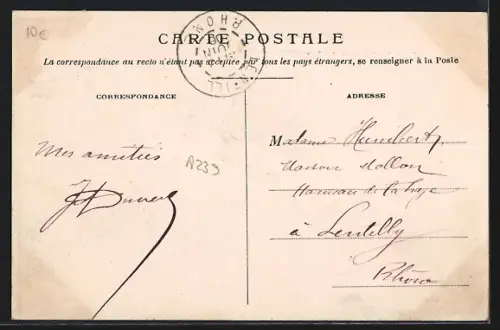 10€
CARTE POSTALE
La correspondance au recto n'étant pas acceptée par tous les pays étrangers, se renseigner à la Poste
RHONE
CORRESPONDANCE
Mes amitiés
A239
ADRESSE
Madame Humbert
Maison Mollon
Hameau de la
à Lentilly
Rhône